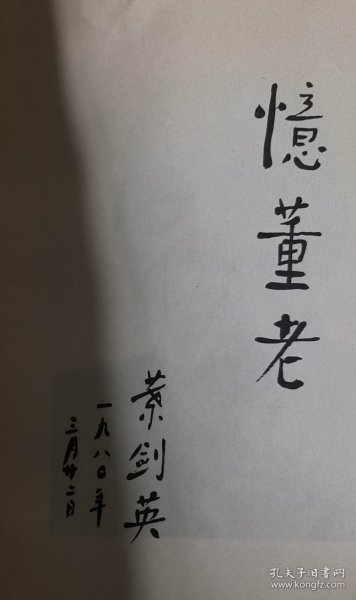 憶董老
葉剑英
一九八〇年
三月廿二日
孔夫子旧书网
www.kongfz.com